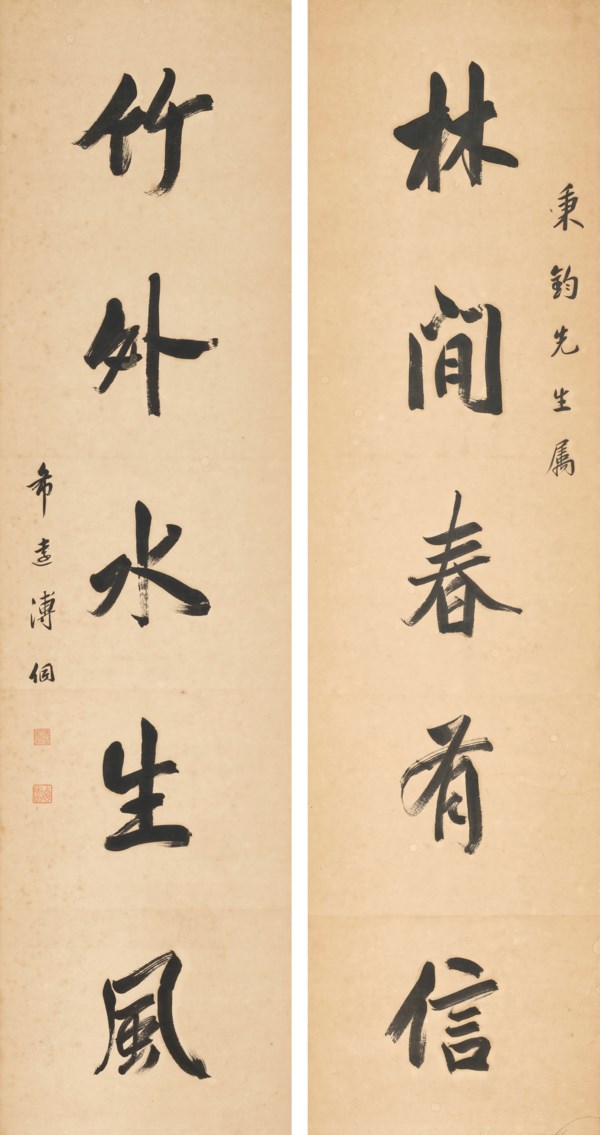 秉鈞先生属
林間春有信
竹外水生風
希遠溥